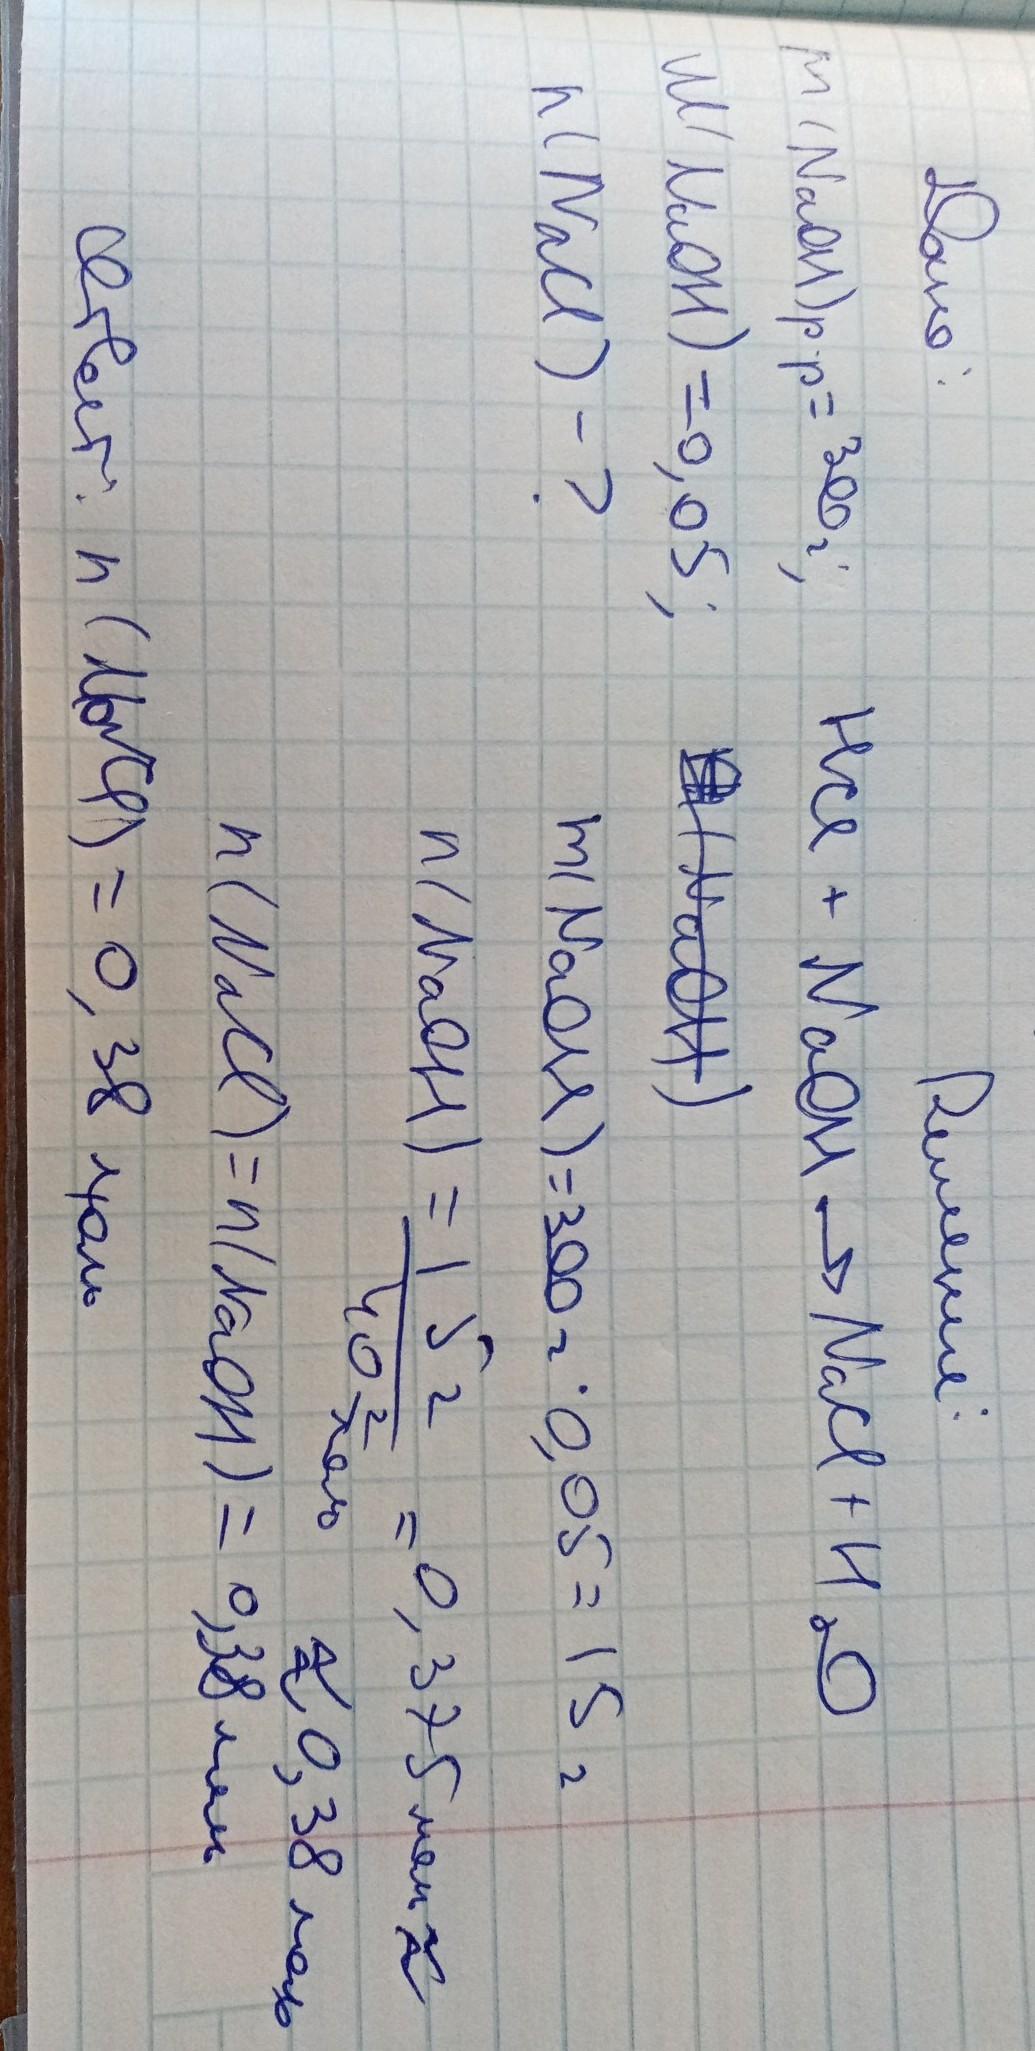 Дано:
Решение:
m(NaOH)р-р=300г;
HCl + NaOH → NaCl + H₂O
W(NaOH)=0,05;
(NaOH)
n(NaCl) - ?
m(NaOH)=300г·0,05=15г
n(NaOH) = 15г / 40 г/моль = 0,375моль ≈
≈ 0,38 моль
n(NaCl)=n(NaOH)= 0,38 моль
Ответ: n(NaCl) = 0,38 моль